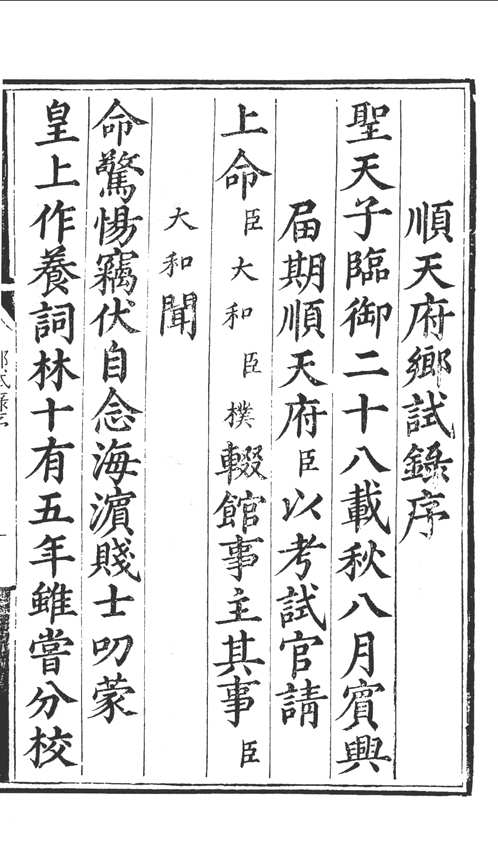 順天府鄉試錄序
聖天子臨御二十八載秋八月賓興
屆期順天府臣以考試官請
上命臣大和臣樸輟館事主其事臣
大和聞
命驚惕竊伏自念海濵賤士叨蒙
皇上作養詞林十有五年雖嘗分校